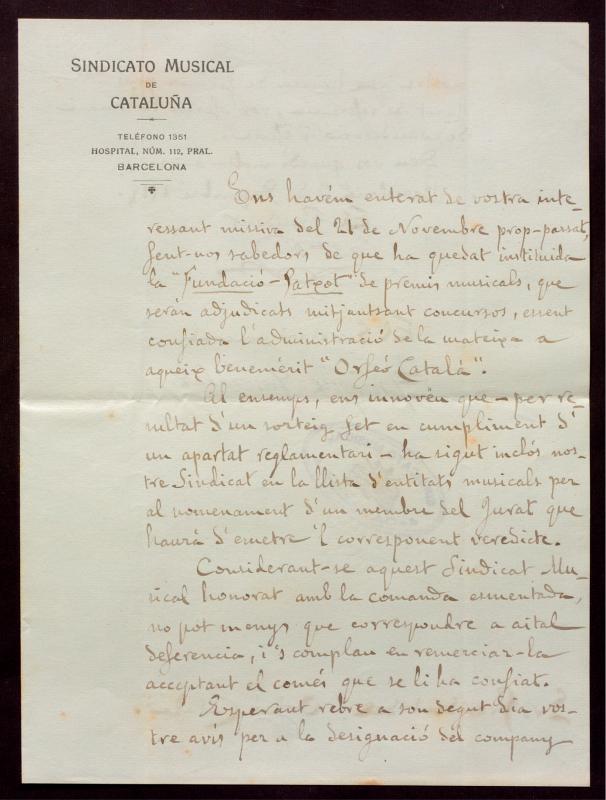 SINDICATO MUSICAL
DE
CATALUÑA
TELÉFONO 1351
HOSPITAL, NÚM. 112, PRAL.
BARCELONA
Ens havém enterat de vostra inte-
ressant missiva del 21 de Novembre prop-passat,
fent-nos sabedors de que ha quedat instituida
la "Fundació-Patxot" de premis musicals, que
serán adjudicats mitjantsant concursos, essent
confiada l'administració de la mateixa a
aqueix benemérit "Orfeó Catalá".
Al ensemps, ens innovéu que - per re-
sultat d'un sorteig fet en cumpliment d'
un apartat reglamentari - ha sigut inclós nos-
tre Sindicat en la llista d'entitats musicals per
al nomenament d'un membre del Jurat que
haurá d'emetre 'l corresponent veredicte.
Considerant-se aquest Sindicat Mu-
sical honorat amb la comanda esmentada,
no pot menys que correspondre a aital
deferencia, i's complau en remerciar-la
acceptant el comés que se li ha confiat.
Esperant rebre a son degut dia vos-
tre avis per a la designació del company